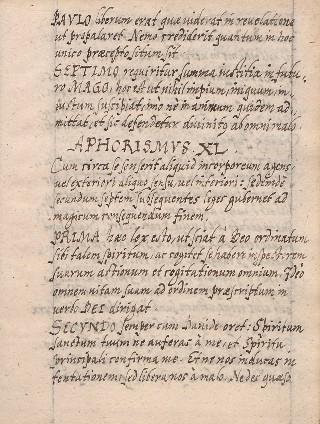 PAVLO liberum erat quæ viderat in revelatione
ut propalaret. Nemo crediderit quantum in hoc
unico præcepto situm sit.
SEPTIMO requiritur summa iustitia in futu-
ro MAGO, hoc est ut nihil impium, iniquum, in-
iustum suscipiat, imo ne in animum quidem ad-
mittat, et sic defendetur divinitus ab omni malo.
APHORISMVS XL
Cum circa se senserit aliquid incorporeum agens
vel exteriori aliquo sensu, vel interiori: sese inde
secundum septem subsequentes leges gubernet ad
magicum consequendum finem.
PRIMA hæc lex esto, ut sciat a Deo ordinatum
sibi talem spiritum: ac cogitet se habere inspectorem
suarum actionum et cogitationum omnium. Ideo
omnem vitam suam ad ordinem præscriptum in
verbo DEI dirigat
SECVNDO semper cum Davide oret: Spiritum
sanctum tuum ne auferas à me, et Spiritu
principali confirma me. Et ne nos inducas in
tentationem: sed libera nos à malo. Ne des quæso